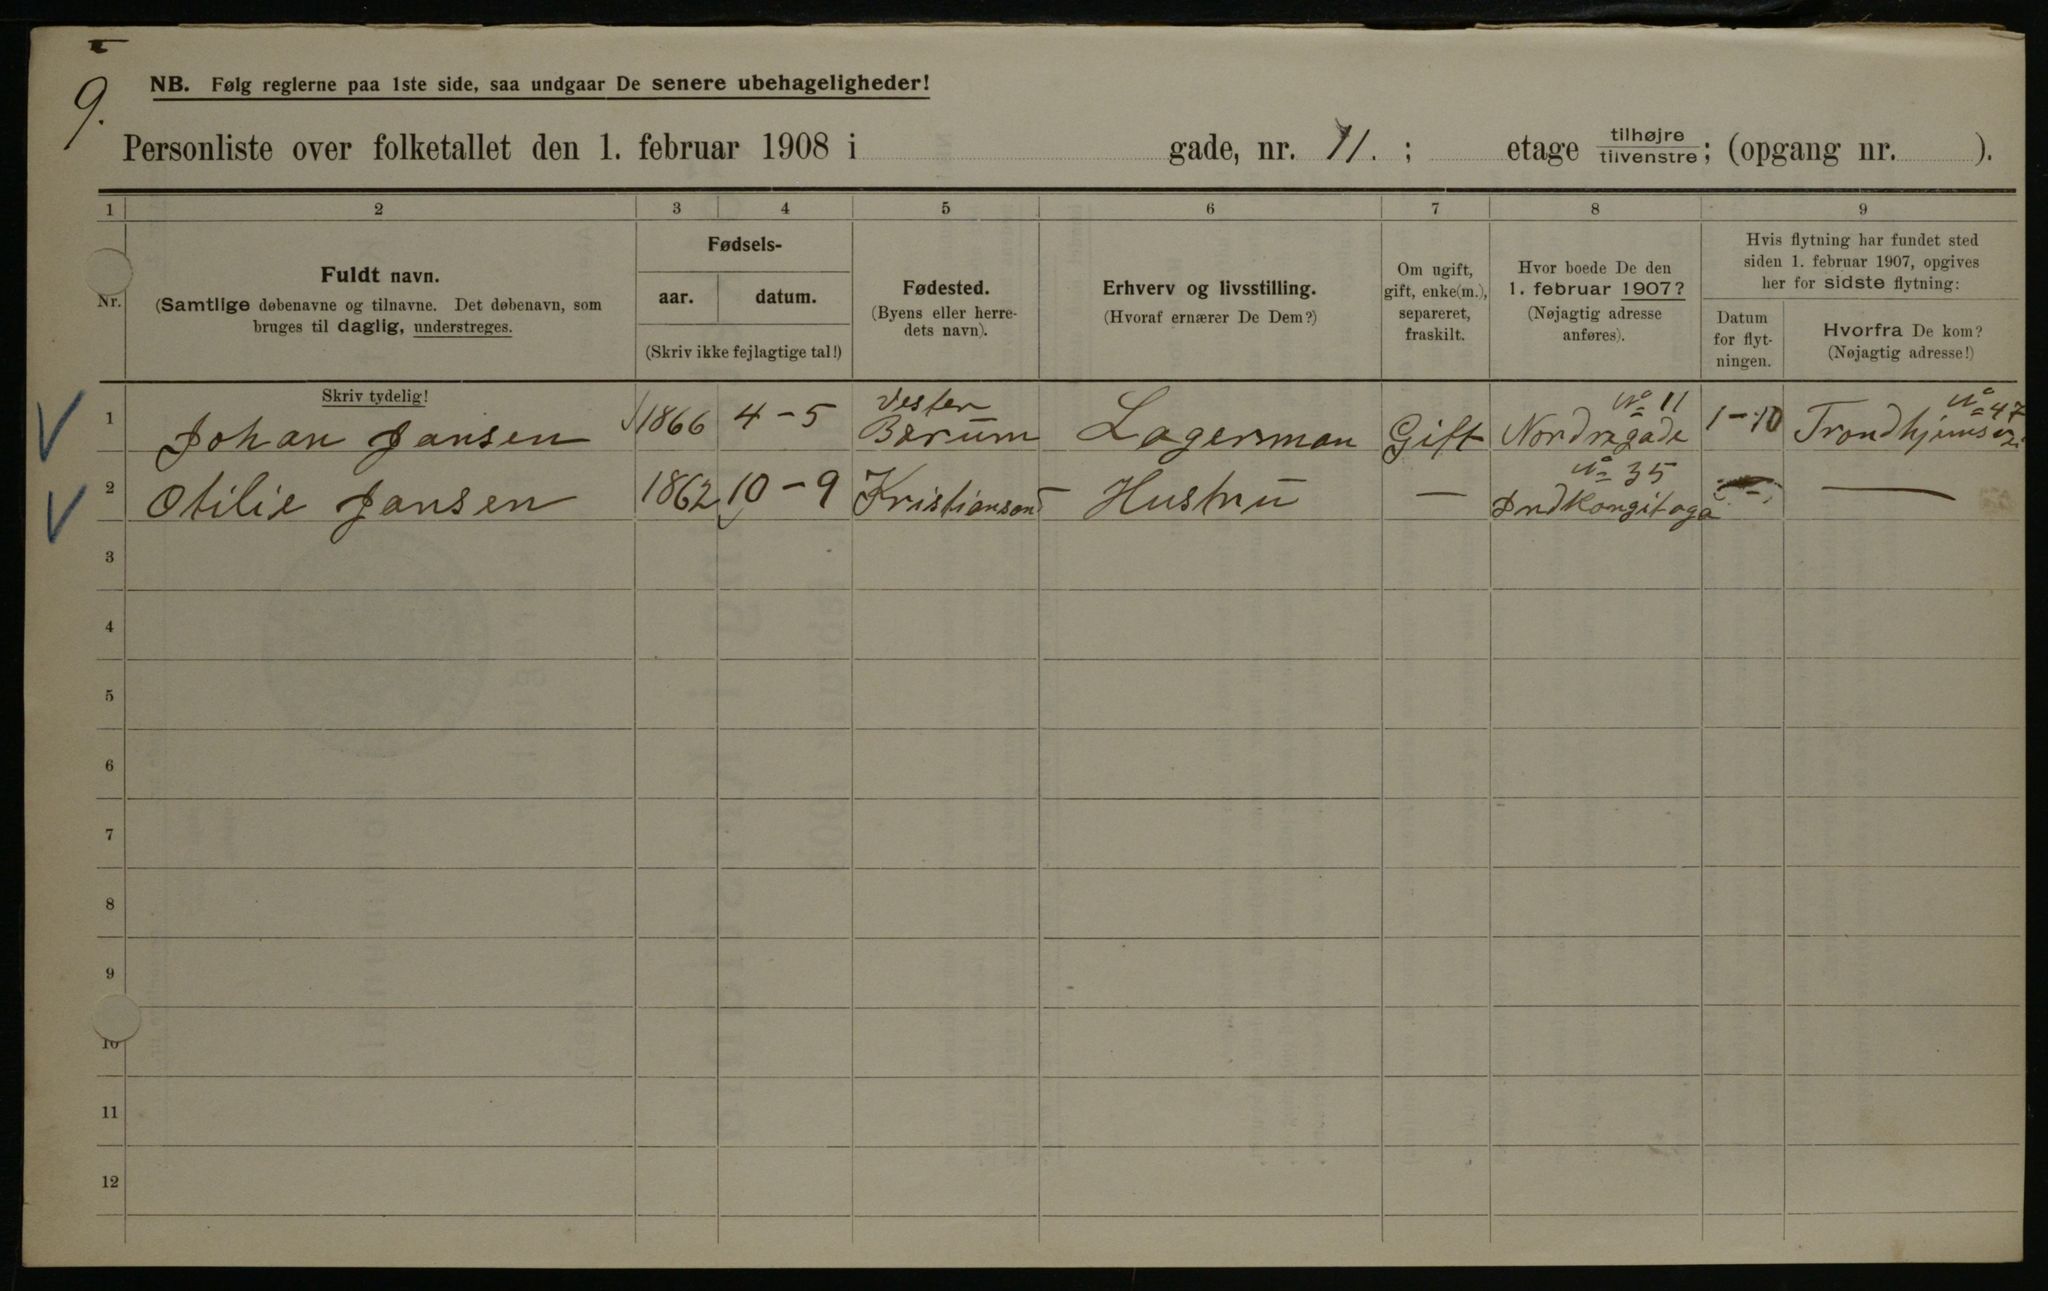 9.
NB. Følg reglerne paa 1ste side, saa undgaar De senere ubehageligheder!
Personliste over folketallet den 1. februar 1908 i gade, nr. 11. ; etage tilhøjre tilvenstre ; (opgang nr. ).
1 2 3 4 5 6 7 8 9
Nr.
Fuldt navn.
(Samtlige døbenavne og tilnavne. Det døbenavn, som
bruges til daglig, understreges.
Skriv tydelig!
Fødsels-
aar. datum.
(Skriv ikke fejlagtige tal!)
Fødested.
(Byens eller herre-
dets navn).
Erhverv og livsstilling.
(Hvoraf ernærer De Dem?)
Om ugift,
gift, enke(m.),
separeret,
fraskilt.
Hvor boede De den
1. februar 1907?
(Nøjagtig adresse
anføres).
Hvis flytning har fundet sted
siden 1. februar 1907, opgives
her for sidste flytning:
Datum
for flyt-
ningen.
Hvorfra De kom?
(Nøjagtig adresse!)
Vester No 11 No 47
1 Johan Jansen 1866 4-5 Bærum Lagerman Gift Nordregade 1-10
No 35
2 Otilie Jansen 1862 10-9 Kristiansand Hustru —
3
4
5
6
7
8
9
10
11
12